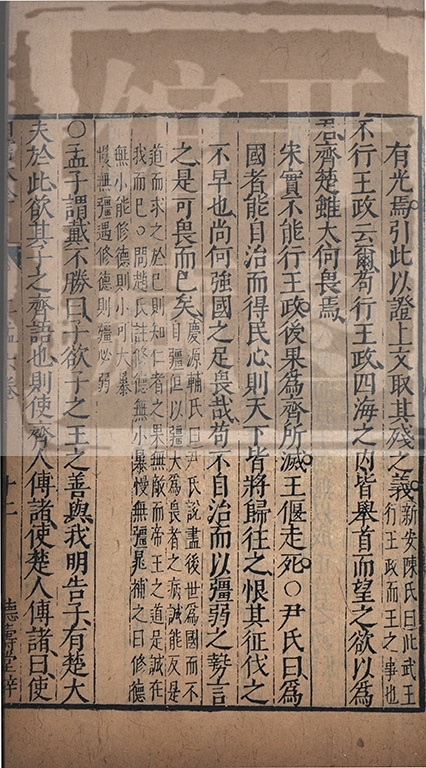 有光焉引此以證上文取其殘之義新安陳氏曰此武王
行王政而王之事也
不行王政云爾苟行王政四海之內皆舉首而望之欲以為
君齊楚雖大何畏焉
宋實不能行王政後果為齊所滅王偃走死○尹氏曰為
國者能自治而得民心則天下皆將歸往之恨其征伐之
不早也尚何強國之足畏哉苟不自治而以彊弱之勢言
之是可畏而已矣慶源輔氏曰尹氏說盡後世為國而不
自彊但以彊大為畏者之病誠能反是
道而求之於已則知仁者之果無敵而帝王之道是誠在
我而已○問趙氏註修德無小暴慢無彊晁補之曰修德
無小能修德則小可大暴
慢無彊遇修德則彊必弱
○孟子謂戴不勝曰子欲子之王之善與我明告子有楚大
夫於此欲其子之齊語也則使齊人傅諸使楚人傅諸曰使
孟六卷
十二
德壽堂梓